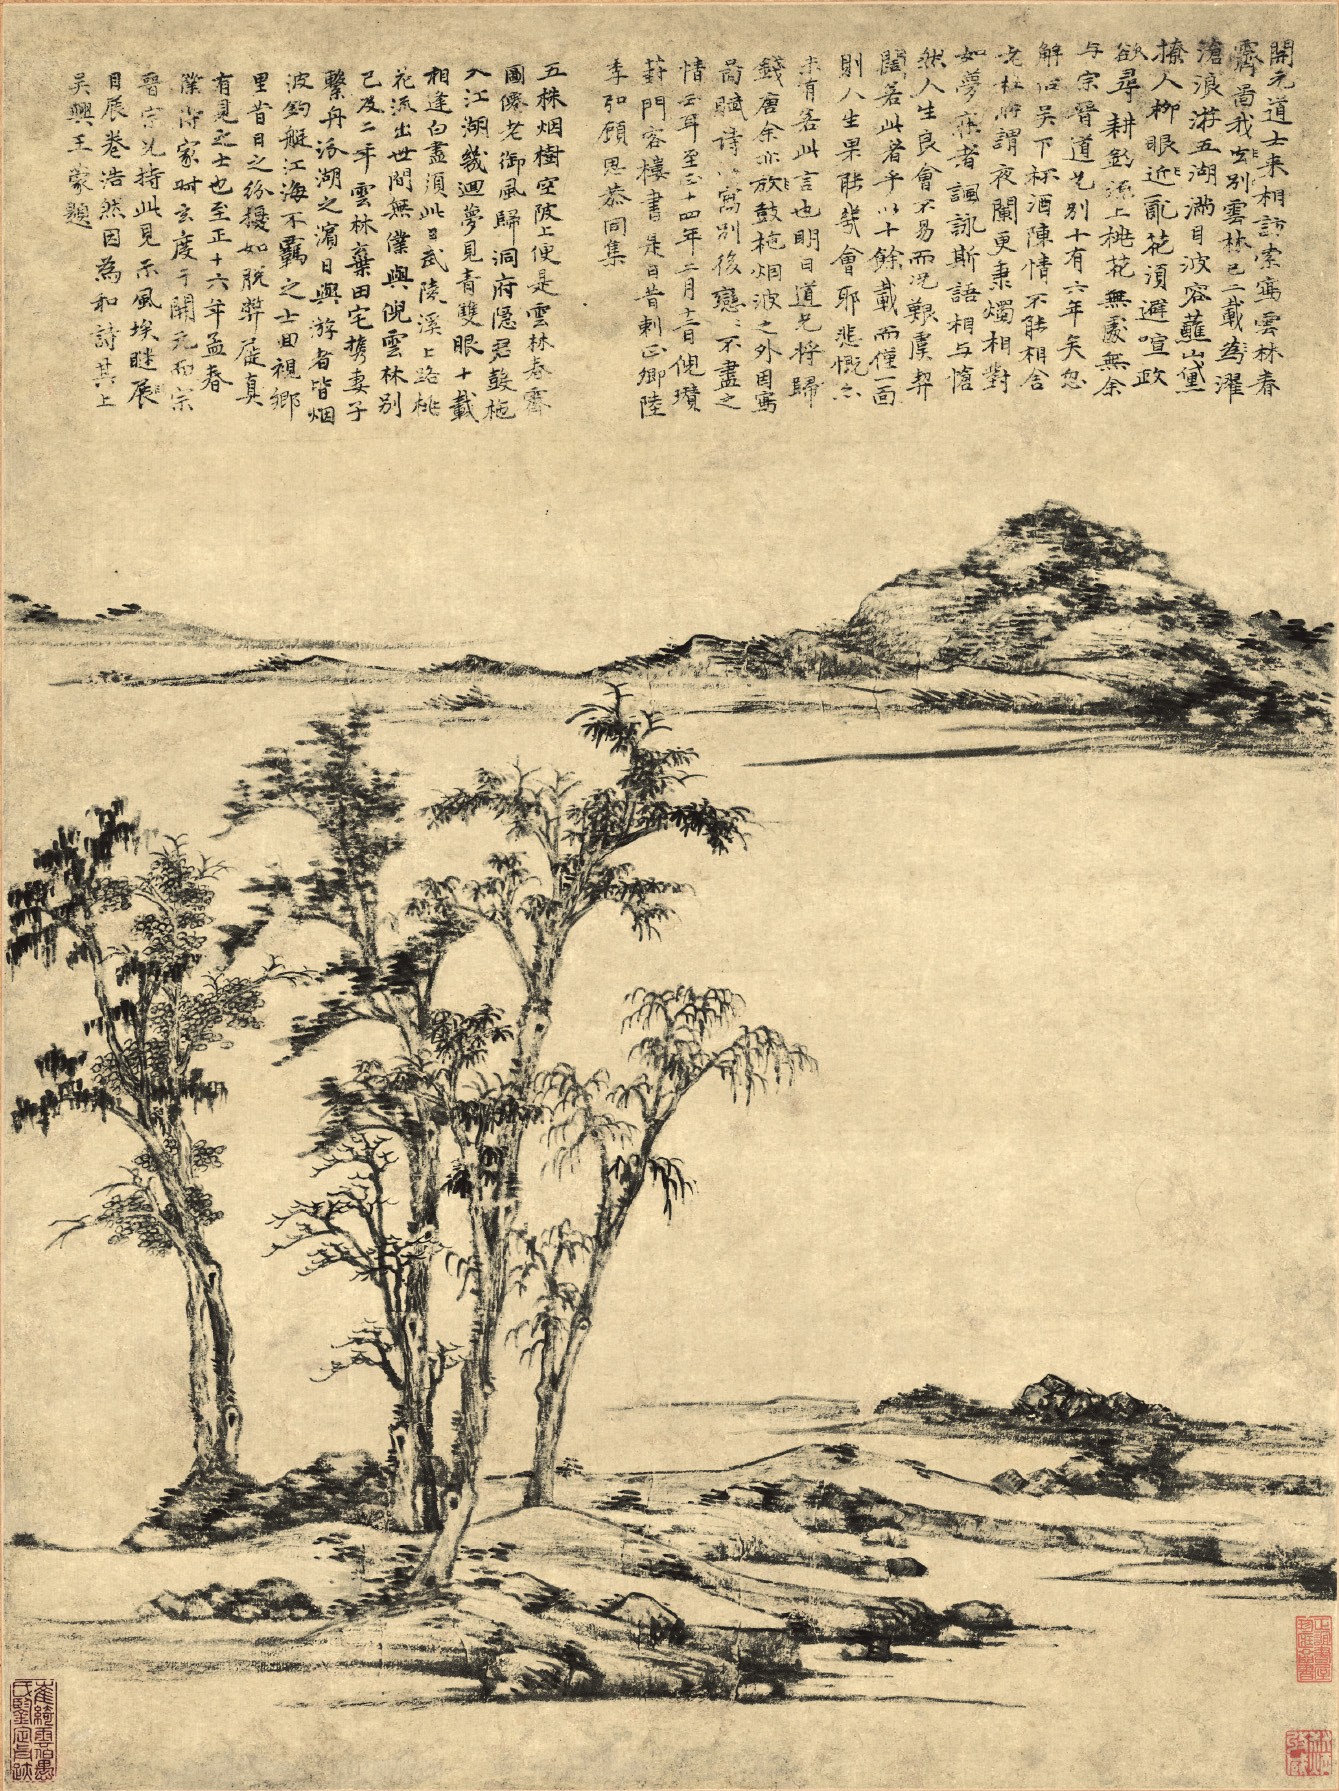 開元道士來相訪索寫雲林春
霽啚我玄別雲林已二載幾濯
滄浪游五湖滿目波容蘸山黛
撩人柳眼近亂花須避喧政
欲尋耕釣源上桃花無處無余
与宗晉道兄別十有六年矣忽
解后吳下杯酒陳情不能相舍
老杜所謂夜闌更秉燭相對
如夢寐者諷詠斯語相与慨
然人生良會不易而況艱虞契
闊若此者乎以十餘載而僅一面
則人生果能幾會耶悲慨之
未有若此言也明日道兄將歸
錢唐余亦放鼓枻烟波之外因寫
啚賦詩以寫別後戀戀不盡之
情云耳至正十四年二月十二日倪瓚
葑門客樓書是日昔刺正卿陸
季弘顧思恭同集
五株烟樹空陂上便是雲林春霽
圖僊老御風歸洞府隱君鼓枻
入江湖幾迴夢見青雙眼十載
相逢白盡須此日武陵溪上路桃
花流出世間無僕與倪雲林別
已及二年雲林棄田宅携妻子
繫舟泖湖之濵日與游者皆烟
波釣艇江海不羈之士囬視鄉
里昔日之紛擾如脫弊屣真
有見之士也至正十六年孟春
僕將家時玄度于開元而宗
晉宗兄持此見示風埃眯
目展卷浩然因為和詩其上
吳興王蒙題